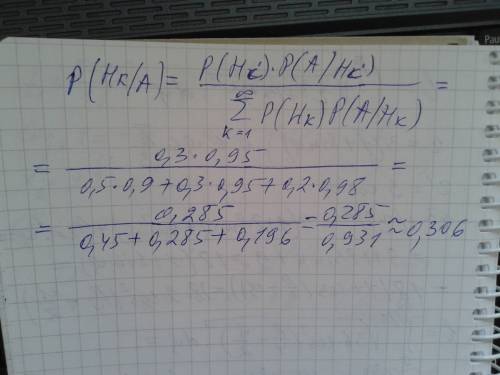 P(Hк/A) = P(Hк)·P(A/Hк) / ∞∑к=1 P(Hк)P(A/Hк) =
= 0,3·0,95 / 0,5·0,9+0,3·0,95+0,2·0,98 =
= 0,285 / 0,45+0,285+0,196 = 0,285 / 0,931 ≈ 0,306